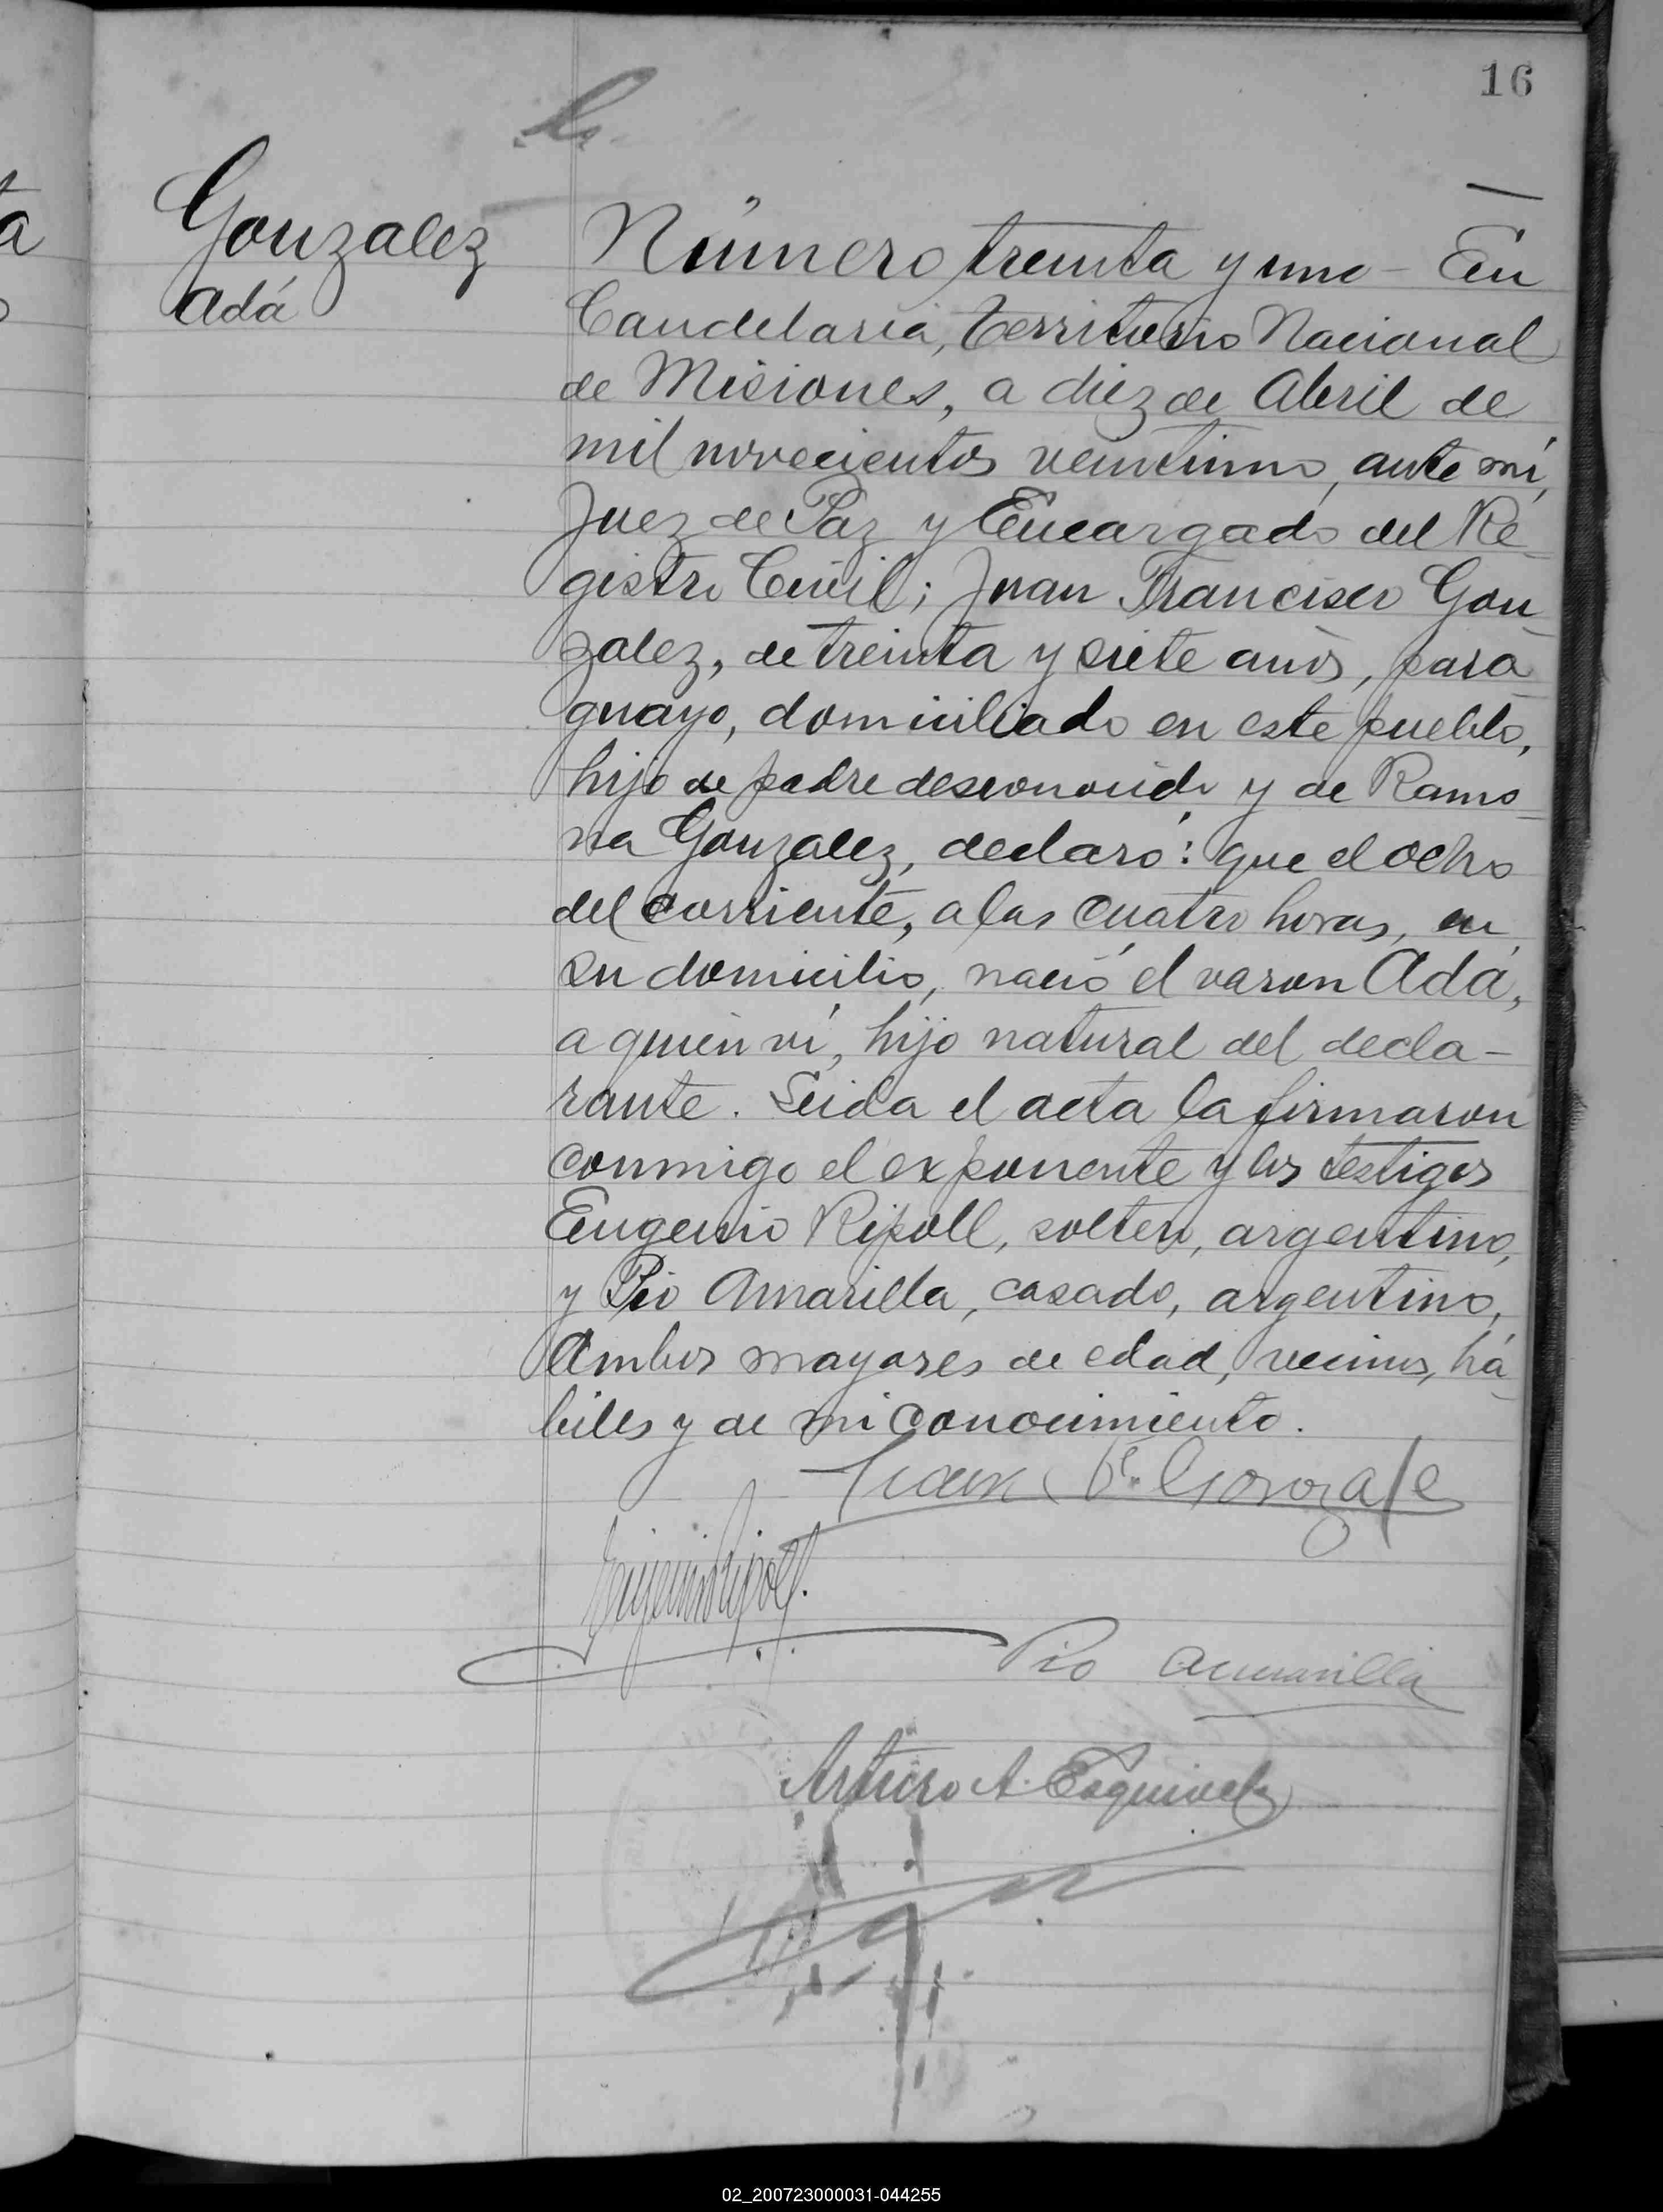 16
Gonzalez
Adá
Número treinta y uno - En
Candelaria, Territorio Nacional
de Misiones, a diez de Abril de
mil novecientos veintiuno, ante mí,
Juez de Paz y Encargado del Re-
gistro Civil; Juan Francisco Gon-
zalez, de treinta y siete años, para-
guayo, domiciliado en este pueblo,
hijo de padre desconocido y de Ramo-
na Gonzalez, declaró: que el ocho
del corriente, a las cuatro horas, en
su domicilio, nació el varon Adá,
a quien ví, hijo natural del decla-
rante. Leida el acta la firmaron
conmigo el exponente y los testigos
Eugenio Ripoll, soltero, argentino,
y Pio Amarilla, casado, argentino,
ambos mayores de edad, vecinos, há-
biles y de mi conocimiento.
Juan F. Gonzale
Eugenio Ripoll.
Pio Amarilla
Arturo A. Esquivel
02_200723000031-044255